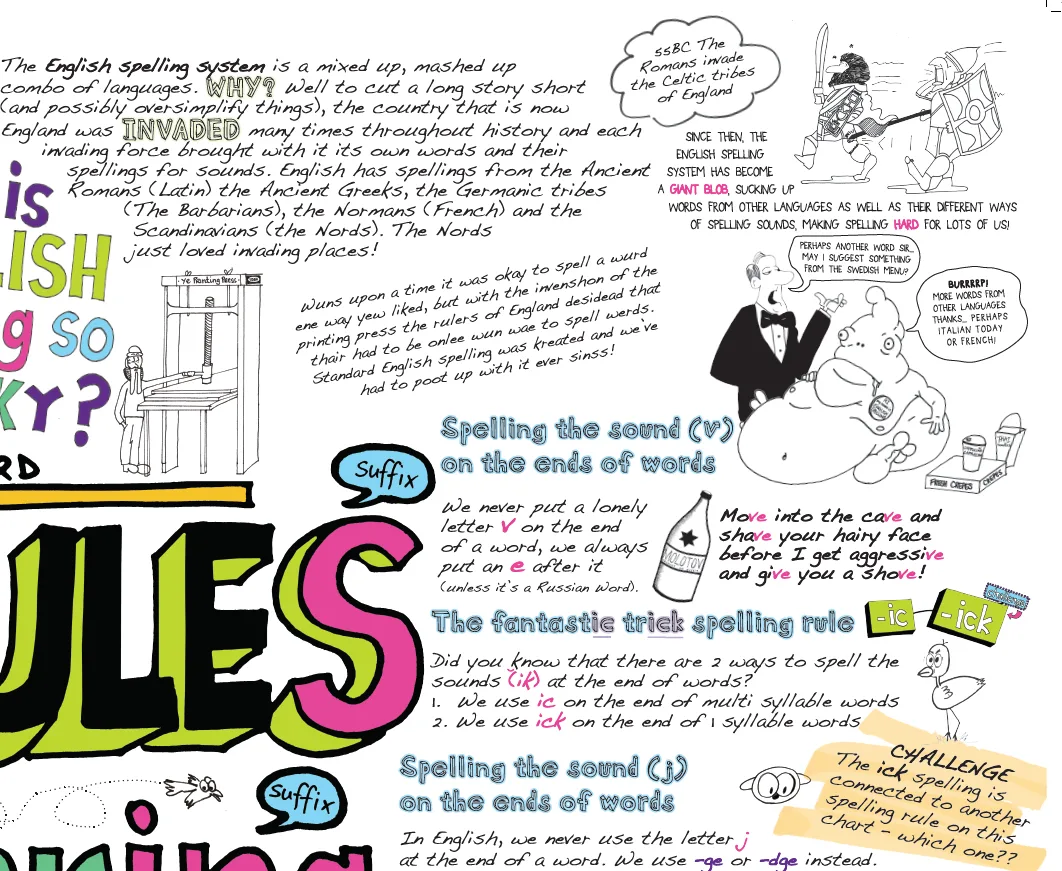 The English spelling system is a mixed up, mashed up
combo of languages. WHY? Well to cut a long story short
(and possibly oversimplify things), the country that is now
England was INVADED many times throughout history and each
invading force brought with it its own words and their
spellings for sounds. English has spellings from the Ancient
Romans (Latin) the Ancient Greeks, the Germanic tribes
(The Barbarians), the Normans (French) and the
Scandinavians (the Nords). The Nords
just loved invading places!
55BC The
Romans invade
the Celtic tribes
of England
SINCE THEN, THE
ENGLISH SPELLING
SYSTEM HAS BECOME
A GIANT BLOB, SUCKING UP
WORDS FROM OTHER LANGUAGES AS WELL AS THEIR DIFFERENT WAYS
OF SPELLING SOUNDS, MAKING SPELLING HARD FOR LOTS OF US!
is
LISH
g so
KY?
Ye Printing Press
Wuns upon a time it was okay to spell a wurd
ene way yew liked, but with the invenshon of the
printing press the rulers of England desidead that
thair had to be onlee wun wae to spell werds.
Standard English spelling was kreated and we've
had to poot up with it ever sinss!
PERHAPS ANOTHER WORD SIR,
MAY I SUGGEST SOMETHING
FROM THE SWEDISH MENU?
BURRRRP!
MORE WORDS FROM
OTHER LANGUAGES
THANKS... PERHAPS
ITALIAN TODAY
OR FRENCH!
FRESH CREPES
CREPES
THAI
RD
ULES
Suffix
Spelling the sound (v)
on the ends of words
We never put a lonely
letter v on the end
of a word, we always
put an e after it
(unless it's a Russian Word).
MOLOTOV
Move into the cave and
shave your hairy face
before I get aggressive
and give you a shove!
The fantastic trick spelling rule
-ic
-ick
Did you know that there are 2 ways to spell the
sounds (ik) at the end of words?
1. We use ic on the end of multi syllable words
2. We use ick on the end of 1 syllable words
CHALLENGE
The ick spelling is
connected to another
spelling rule on this
chart - which one??
Suffix
Spelling the sound (j)
on the ends of words
In English, we never use the letter j
at the end of a word. We use -ge or -dge instead.